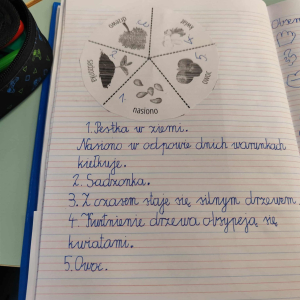 drzewo
kwiat
sadzonka
owoc
nasiono
1
5
1. Pestka w ziemi.
Nasiono w odpowie dnich warunkach
kiełkuje.
2. Sadzonka.
3. Z czasem staje się silnym drzewem.
4. Kwitnienie drzewa obsypują się
kwiatami.
5. Owoc.